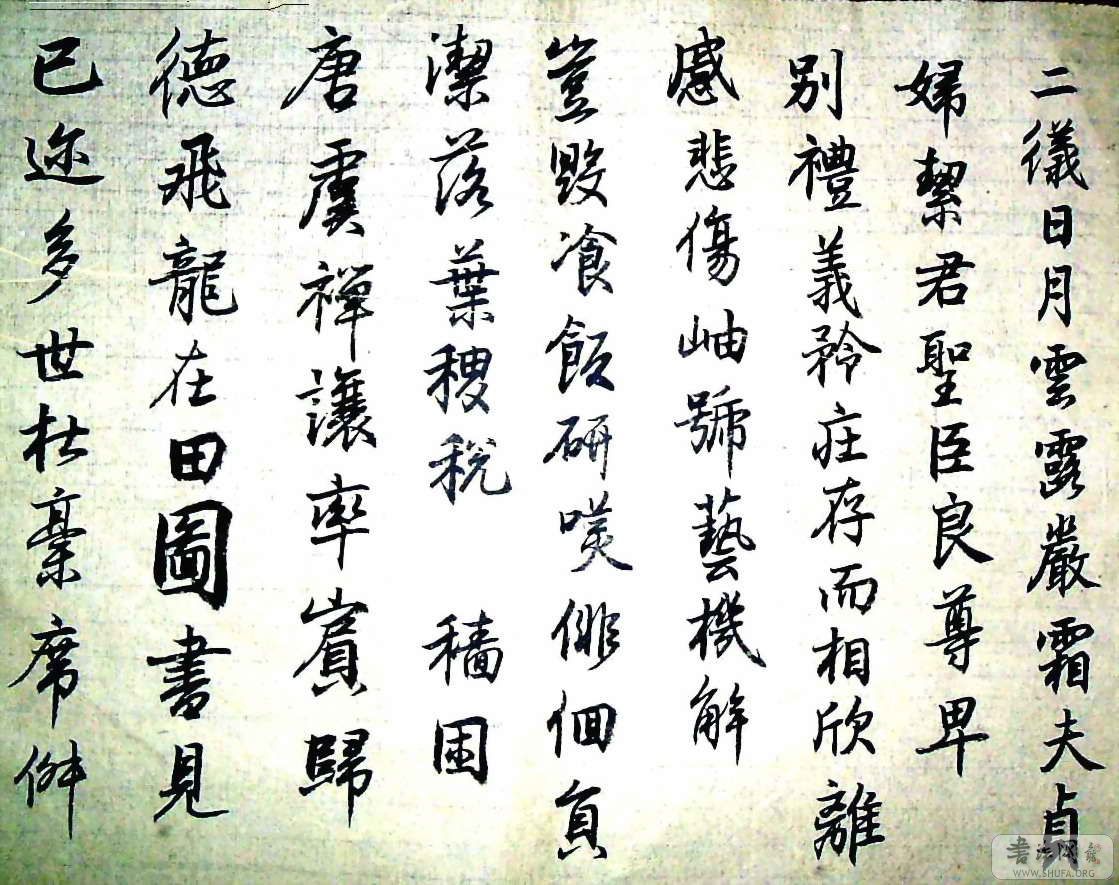 二儀日月雲露嚴霜夫貞
婦絜君聖臣良尊卑
別禮義矜莊存而相欣離
感悲傷岫號藝機解
豈毀飡飯研嘆俳佪負
潔落葉稷稅穡囷
唐虞禪讓率賓歸
德飛龍在田圖書見
已迩多世杜稾席
書法网
WWW.SHUFA.ORG